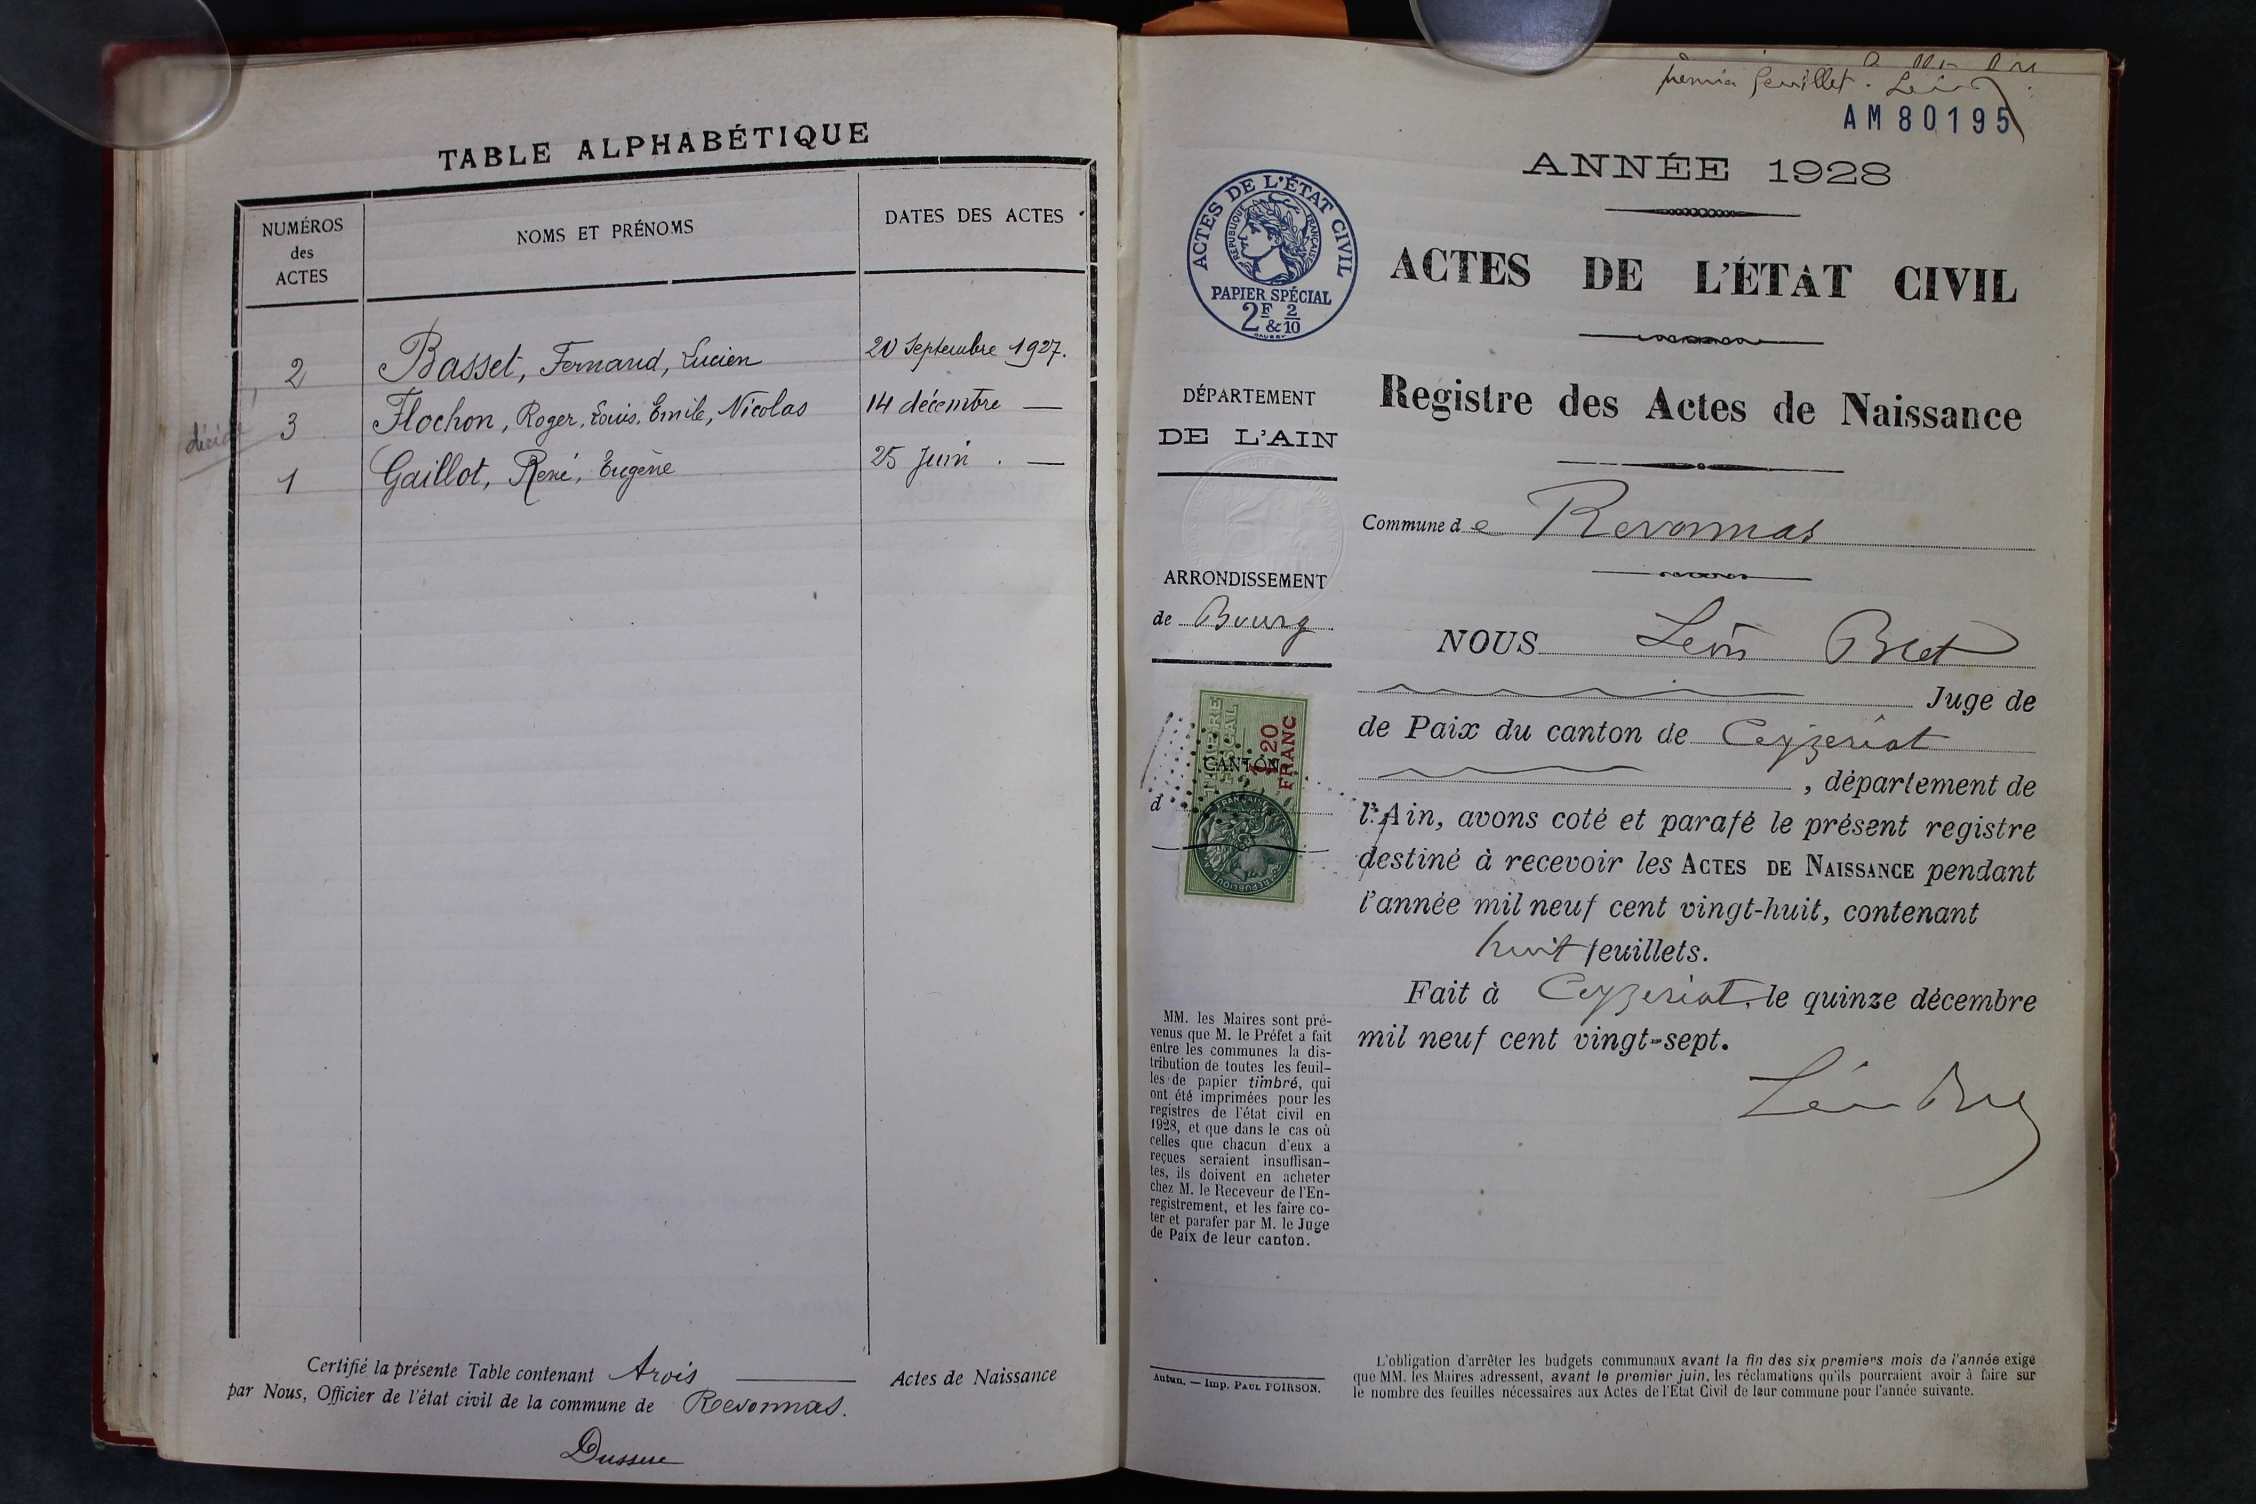 TABLE ALPHABÉTIQUE
NUMÉROS
des
ACTES
NOMS ET PRÉNOMS
DATES DES ACTES
2 Basset, Fernand, Lucien 20 Septembre 1927.
3 Flochon, Roger, Louis, Emile, Nicolas 14 décembre —
1 Gaillot, René, Eugène 25 Juin . —
Certifié la présente Table contenant trois Actes de Naissance
par Nous, Officier de l'état civil de la commune de Revonnas.
feuillet.
AM 80195
ANNÉE 1928
ACTES DE L'ÉTAT CIVIL
RÉPUBLIQUE FRANÇAISE
PAPIER SPÉCIAL
2F & 2/10
ACTES DE L'ÉTAT CIVIL
Registre des Actes de Naissance
DÉPARTEMENT
DE L'AIN
Commune de Revonnas
ARRONDISSEMENT
de Bourg
NOUS Léon Bret
Juge de
de Paix du canton de Ceyzeriat
, département de
l'Ain, avons coté et parafé le présent registre
destiné à recevoir les ACTES DE NAISSANCE pendant
l'année mil neuf cent vingt-huit, contenant
huit feuillets.
Fait à Ceyzeriat, le quinze décembre
mil neuf cent vingt-sept.
Léon Bret
TIMBRE
FISCAL
1 20
FRANC
CANTON
d
MM. les Maires sont pré-
venus que M. le Préfet a fait
entre les communes la dis-
tribution de toutes les feuil-
les de papier timbré, qui
ont été imprimées pour les
registres de l'état civil en
1928, et que dans le cas où
celles que chacun d'eux a
reçues seraient insuffisan-
tes, ils doivent en acheter
chez M. le Receveur de l'En-
registrement, et les faire co-
ter et parafer par M. le Juge
de Paix de leur canton.
Autun. — Imp. PAUL POIRSON.
L'obligation d'arrêter les budgets communaux avant la fin des six premiers mois de l'année exige
que MM. les Maires adressent, avant le premier juin, les réclamations qu'ils pourraient avoir à faire sur
le nombre des feuilles nécessaires aux Actes de l'Etat Civil de leur commune pour l'année suivante.